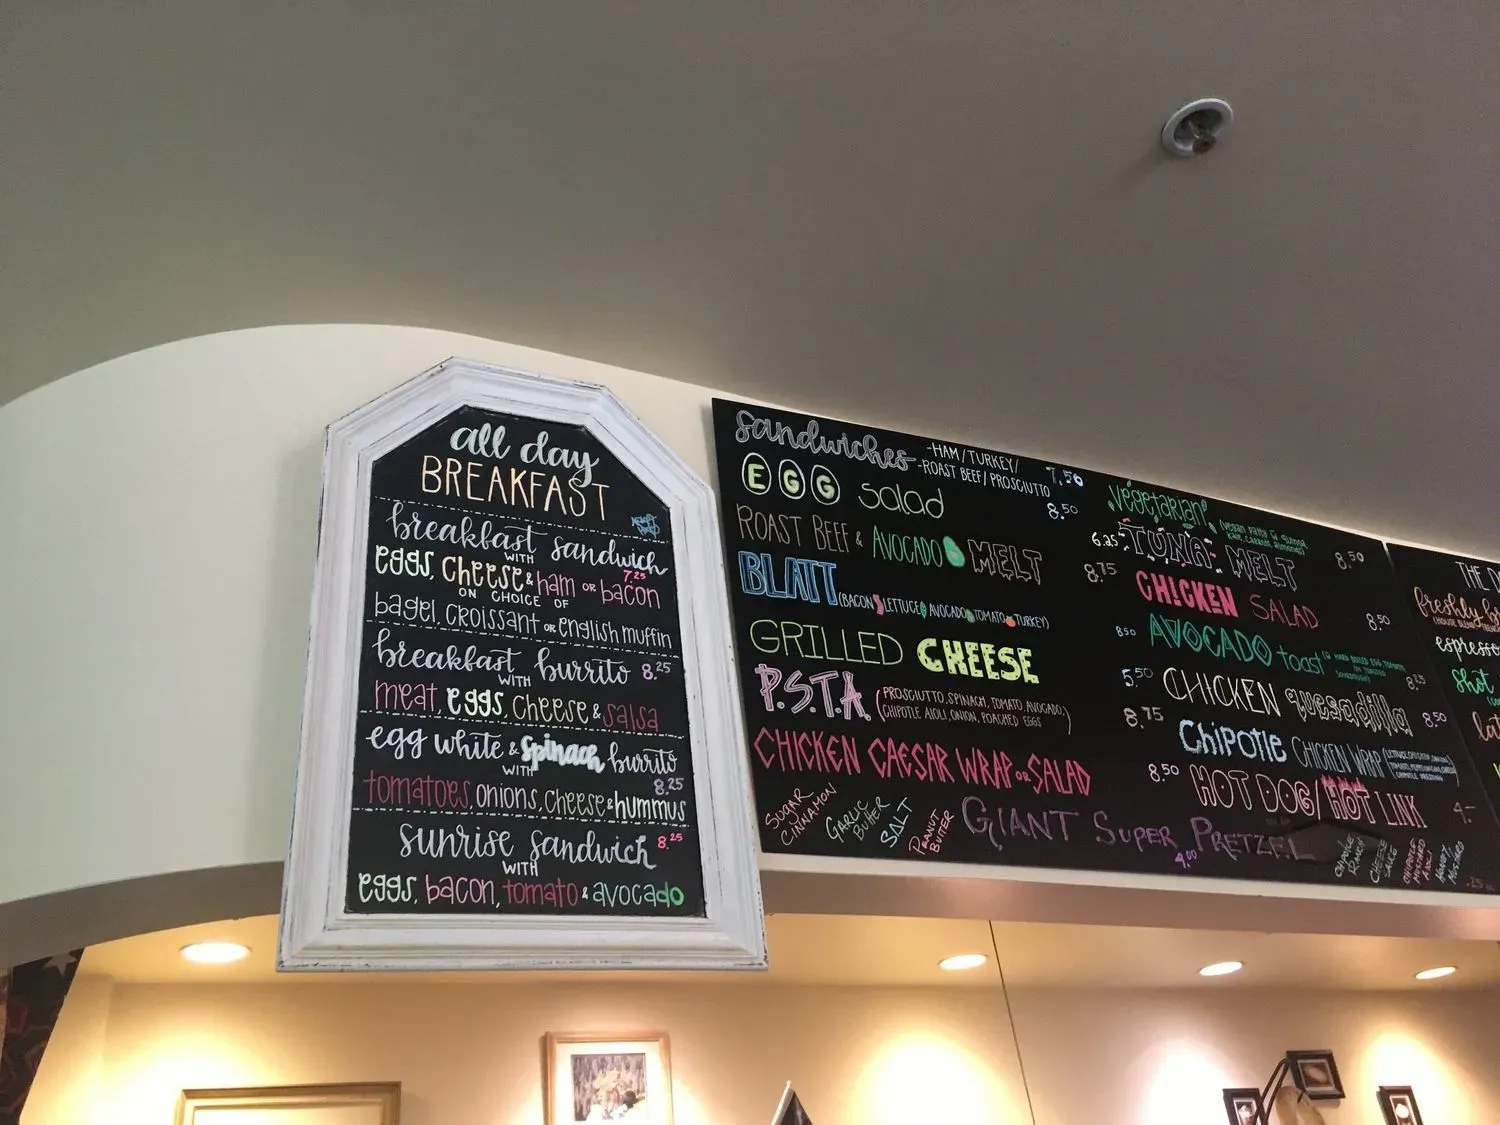 all day
BREAKFAST
breakfast sandwich
WITH 7.25
eggs, cheese & ham OR bacon
ON CHOICE OF
bagel, croissant OR english muffin
breakfast burrito 8.25
WITH
meat, eggs, cheese & salsa
egg white & spinach burrito
WITH 8.25
tomatoes, onions, cheese & hummus
sunrise sandwich 8.25
WITH
eggs, bacon, tomato & avocado
sandwiches -HAM/TURKEY/ 7.50
-ROAST BEEF/PROSCIUTTO 8.50
EGG salad 6.25
ROAST BEEF & AVOCADO MELT 8.75
BLATT (BACON LETTUCE AVOCADO TOMATO TURKEY) 8.50
GRILLED CHEESE 5.50
P.S.T.A. (PROSCIUTTO, SPINACH, TOMATO, AVOCADO,
CHIPOTLE AIOLI, ONION, POACHED EGGS) 8.75
CHICKEN CAESAR WRAP OR SALAD 8.50
vegetarian (vegan patty &
kale, 8.50
TUNA MELT
CHICKEN SALAD 8.50
AVOCADO toast
CHICKEN quesadilla 8.50
Chipotle CHICKEN WRAP
HOT DOG/HOT LINK 4.-
SUGAR
CINNAMON
GARLIC
BUTTER
SALT
PEANUT
BUTTER
GIANT SUPER PRETZEL
4.00
CHIPOTLE
RANCH
CHEESE
SAUCE
CHIPOTLE
MUSTARD
AIOLI
HONEY
MUSTARD
.25
THE
freshly
espresso
shot